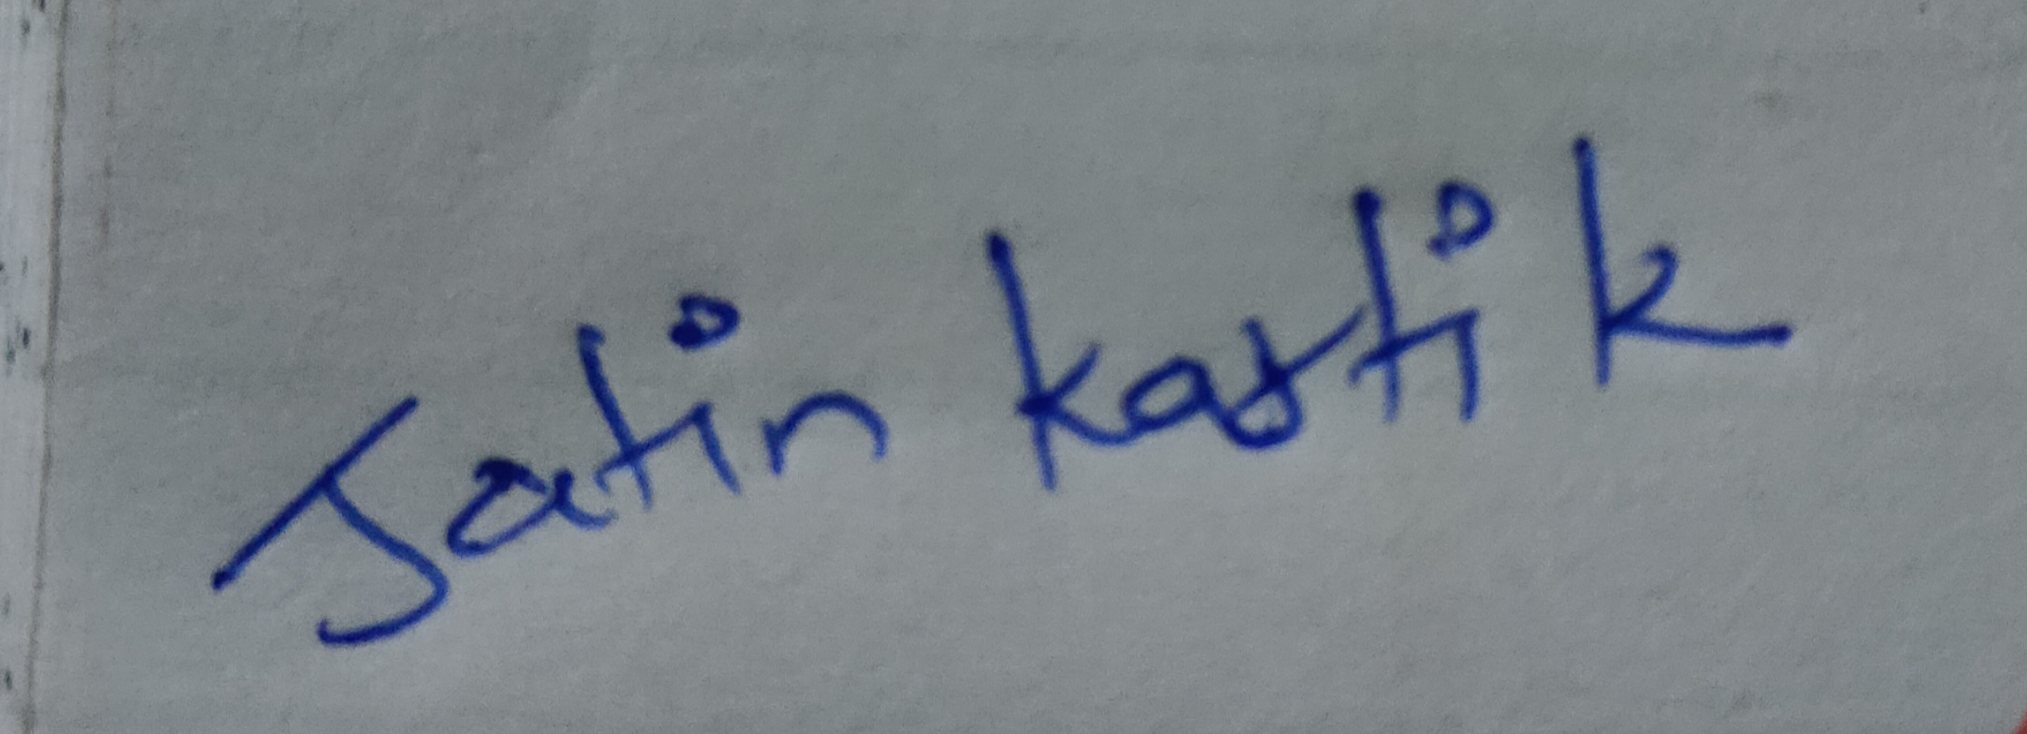 Jatin kartik